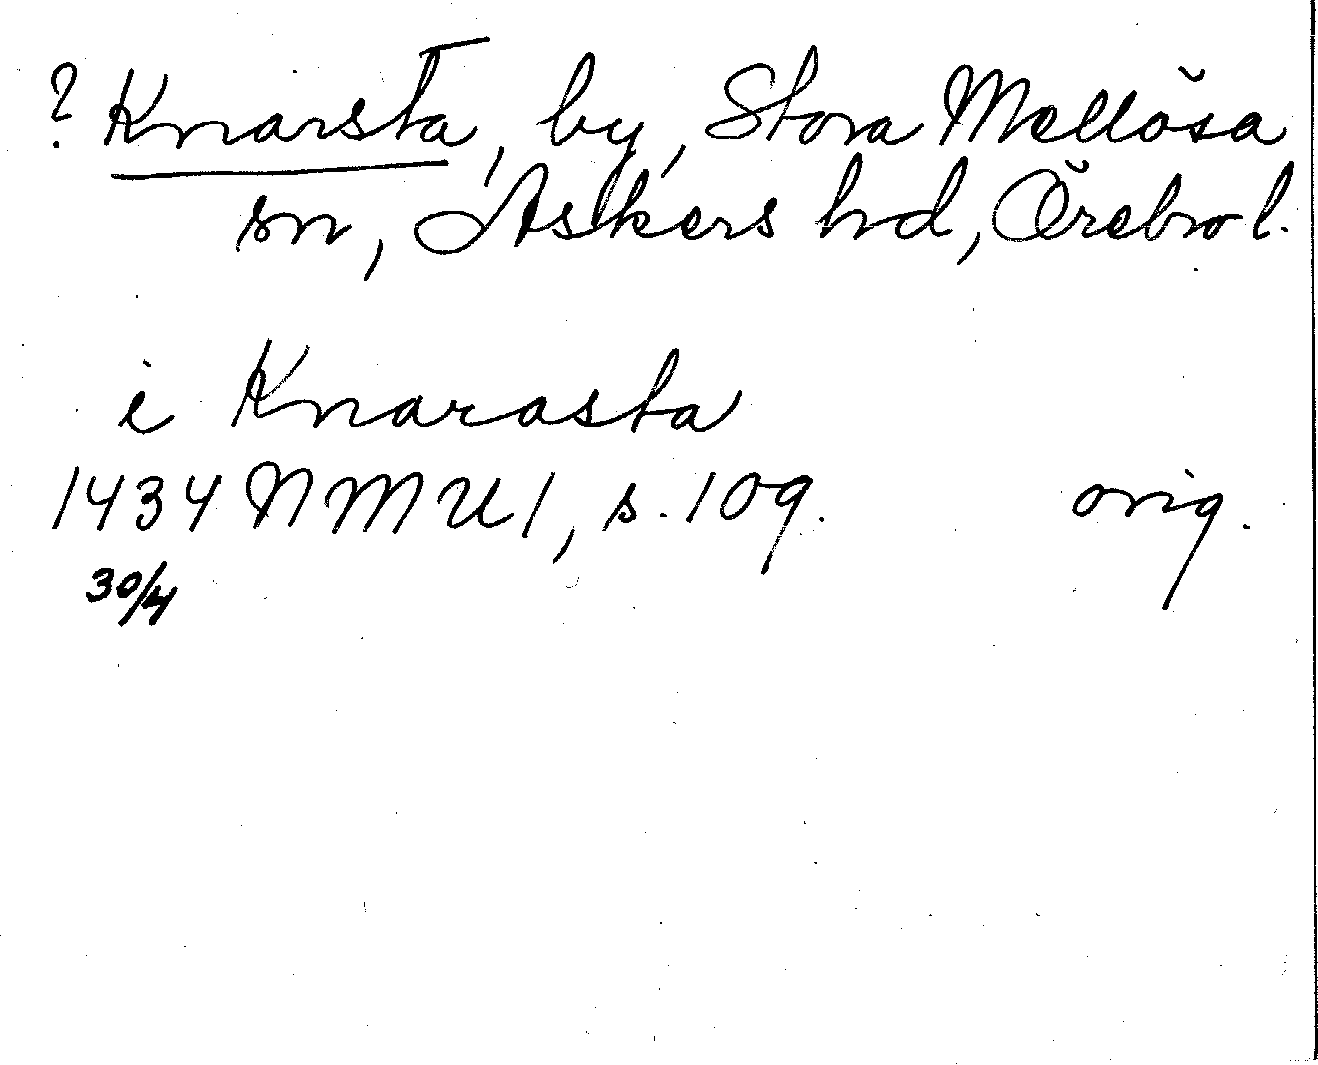 ? Knarsta, by, Stora Mellösa
sn, Askers hd, Örebro l.
i Knarasta
1434 NMU 1, s. 109. orig.
30/4